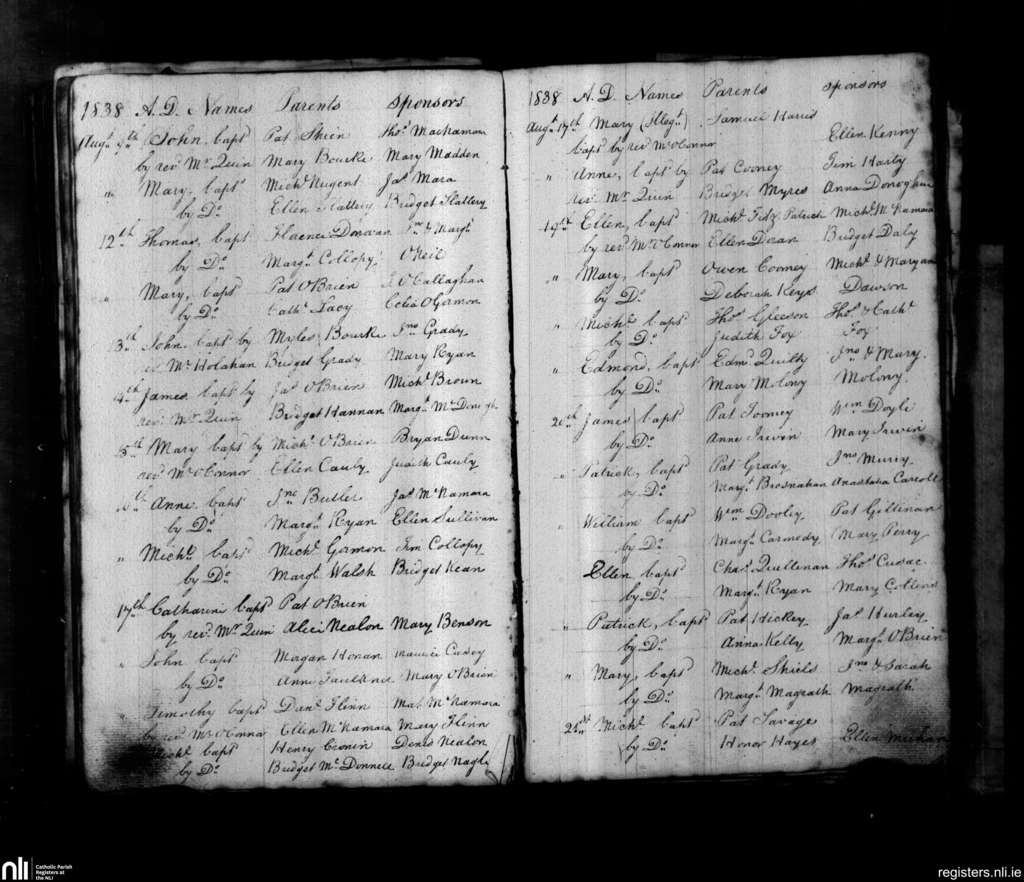 1838 A.D. Names Parents Sponsors
Augt. 9th John, bapt Pat Shien Thos. Mackamara
by revd Mr. Quin Mary Bourke Mary Madden
" Mary, bapt Michl. Nugent Jas. Mara
by Do. Ellen Slattery Bridget Slattery
12th Thomas, bapt Florence Donovan & Margt.
by Do. Margt. Collopy O'Neil
" Mary, bapt Pat O'Brien J. O'Callaghan
by Do. Cath. Lacy Celia O'Gorman
13th John bapt by Myles Bourke Jno Grady
rev. Mr. Holahan Bridget Grady Mary Ryan
14th James bapt by Jas. O'Brien Michl. Broun
revd. Mr. Quin Bridget Hannan Margt. Mc.Donogh
15th Mary bapt by Michl. O'Brien Bryan Dunn
revd Mr O'Connor Ellen Cauly Judith Cauly
16th Anne bapt Jno Butler Jas. McNamara
by Do. Margt. Ryan Ellen Sullivan
" Michl. bapt Michl. Gorman Jim Collopy
by Do. Margt. Walsh Bridget Kean
17th Catharine bapt Pat O'Brien
by revd. Mr. Quin Alice Nealon Mary Benson
" John bapt Morgan Honan Maurice
by Do. Anne Faulkner Mary O'Brien
" Timothy bapt Danl. Flinn Mat. Mc.Namara
by revd Mr O'Connor Ellen McNamara Mary Flinn
Michl. bapt Henry Cronin Denis Nealon
by Do. Bridget Mc.Donnell Bridget Nagle
1838 A.D. Names Parents Sponsors
Augt. 17th Mary (Illegt.) Samuel Harris
bapt by rev Mr O'Connor Ellen Kenny
" Anne, bapt by Pat Cooney Tim Harty
rev. Mr. Quin Bridgt. Myres Anna Donoghue
19th Ellen, bapt Michl. Fitz Patrick Michl. McNamara
by revd. Mr. O'Connor Ellen Dean Bridget Daly
" Mary, bapt Owen Cooney Michl. & Maryann
by Do. Deborah Keys Dawson
" Michl. bapt Thos. Gleeson Thos. & Cath.
by Do. Judith Fox Fox
" Edmond, bapt Edmd. Quilty Jno & Mary
by Do. Mary Molony Molony
20th James bapt Pat Toomey Wm Doyle
by Do. Anne Irwin Mary Irwin
" Patrick, bapt Pat Grady Jno Murry
by Do. Margt. Brosnahan Anastatia Carroll
" William bapt Wm Dooley Pat Gillinan
by Do. Margt. Carmody Mary Perry
Ellen bapt Chas. Quillenan Thos. Cusac
by Do. Margt. Ryan Mary Collins
" Patrick, bapt Pat Hickey Jas. Hurley
by Do. Anna Kelly Margt. O'Brien
" Mary, bapt Michl. Shiels Jno & Sarah
by Do. Margt. Magrath Magrath
21st Michl. bapt Pat Savage
by Do. Honor Hayes Ellen Meehan
nli Catholic Parish
Registers at
the NLI
registers.nli.ie